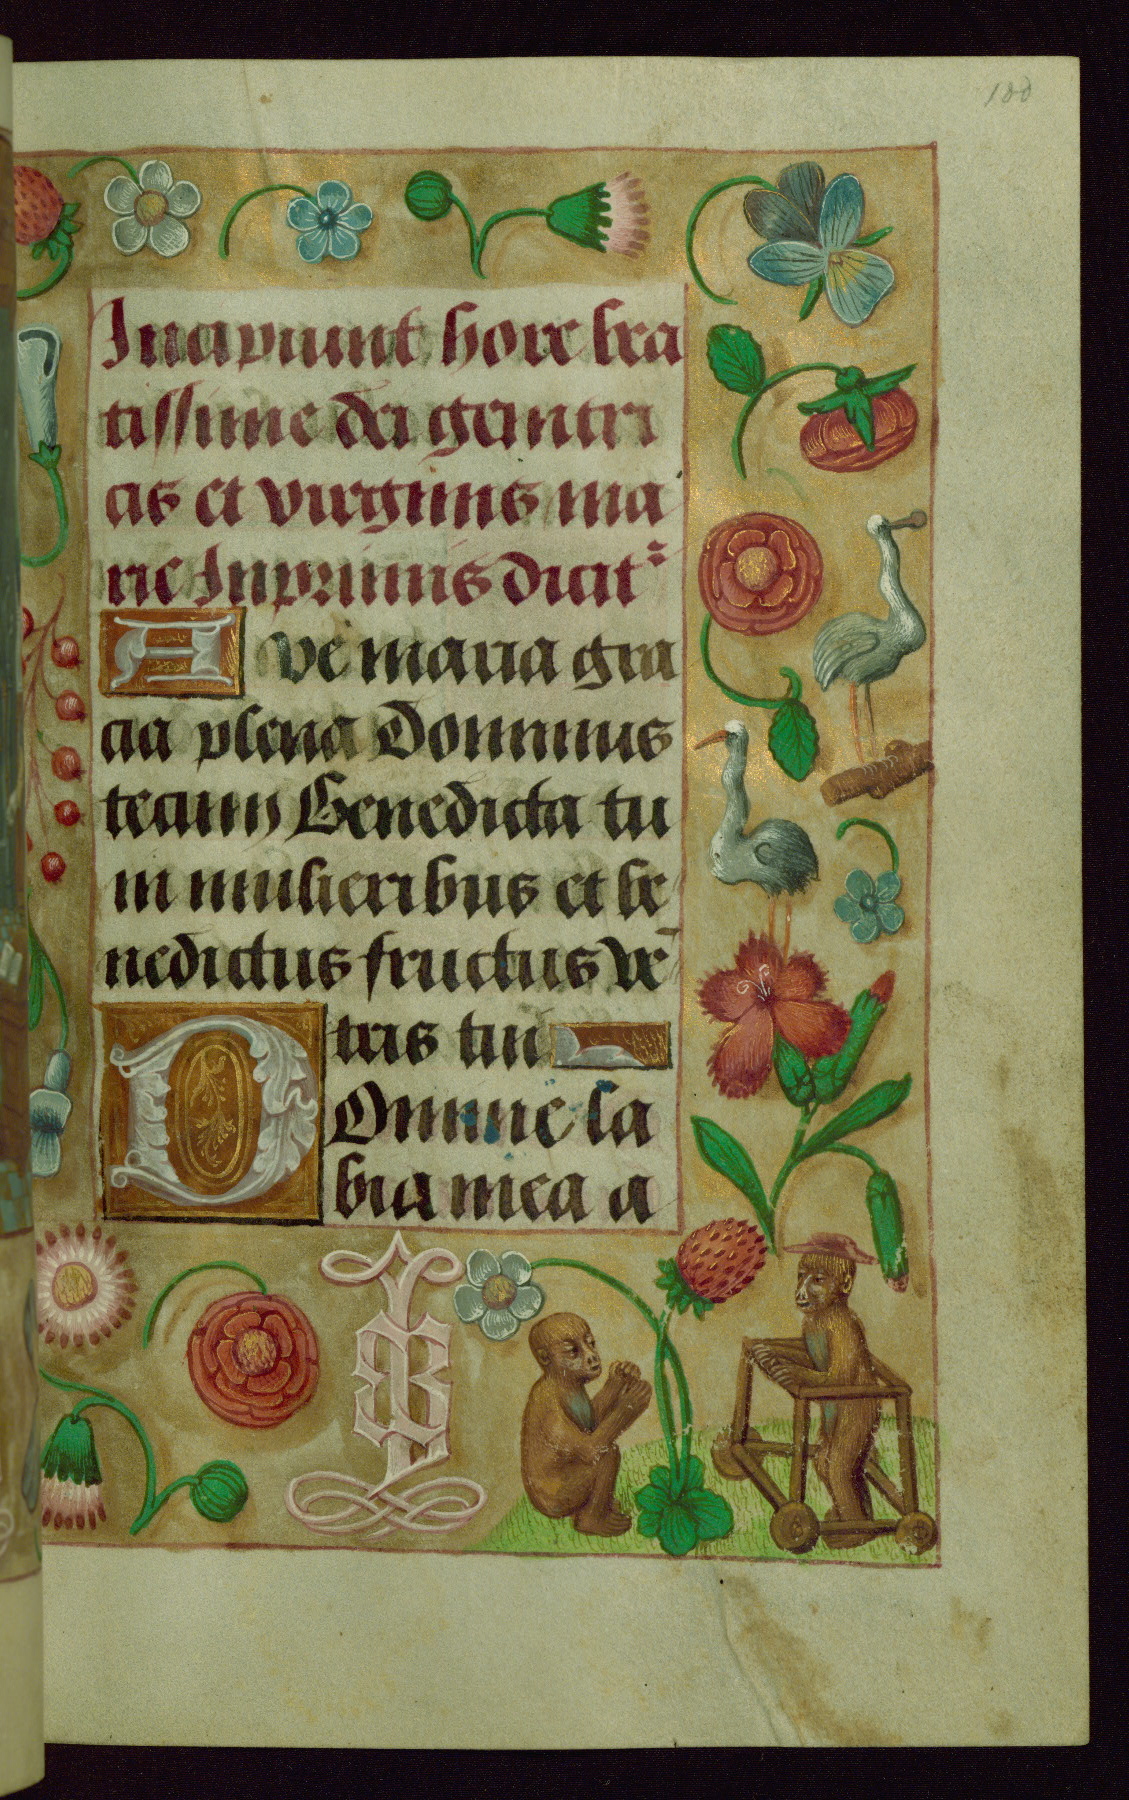 100
Incipiunt hore bea
tissime dei genitri
cis et virginis ma
rie Inprimis dicit᷑
Ave maria gra
cia plena Dominus
tecum Benedicta tu
in mulieribus et be
nedictus fructus vē
tris tui
Domine la
bia mea a